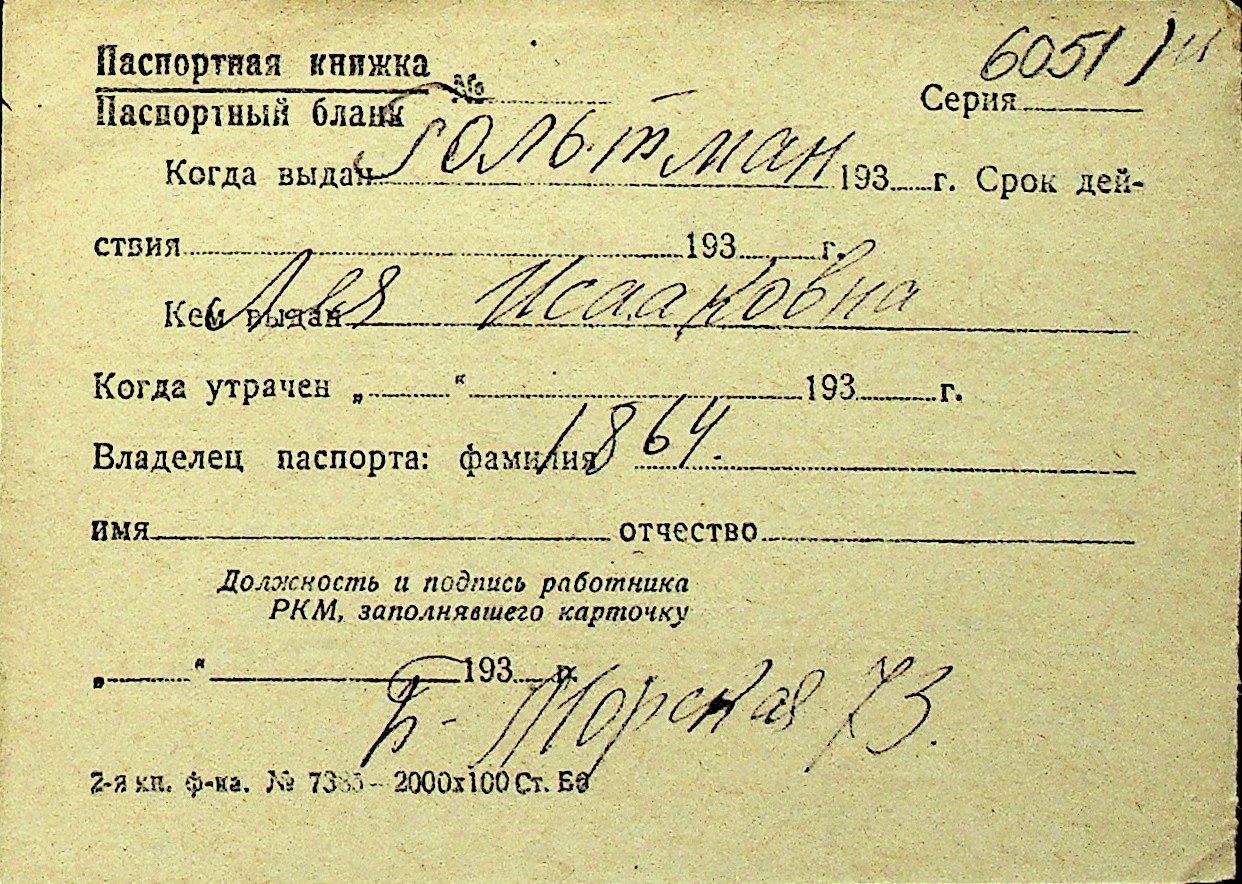 6051
Паспортная книжка
№ Серия
Паспортный бланк
Гольтман
Когда выдан 193 г. Срок дей-
ствия 193 г.
Лея Исааковна
Кем выдан
Когда утрачен „ “ 193 г.
1864.
Владелец паспорта: фамилия
имя отчество
Должность и подпись работника
РКМ, заполнявшего карточку
„ “ 193 г.
Б-Морская 73.
2-я кн. ф-ка. № 2000х100 Ст.